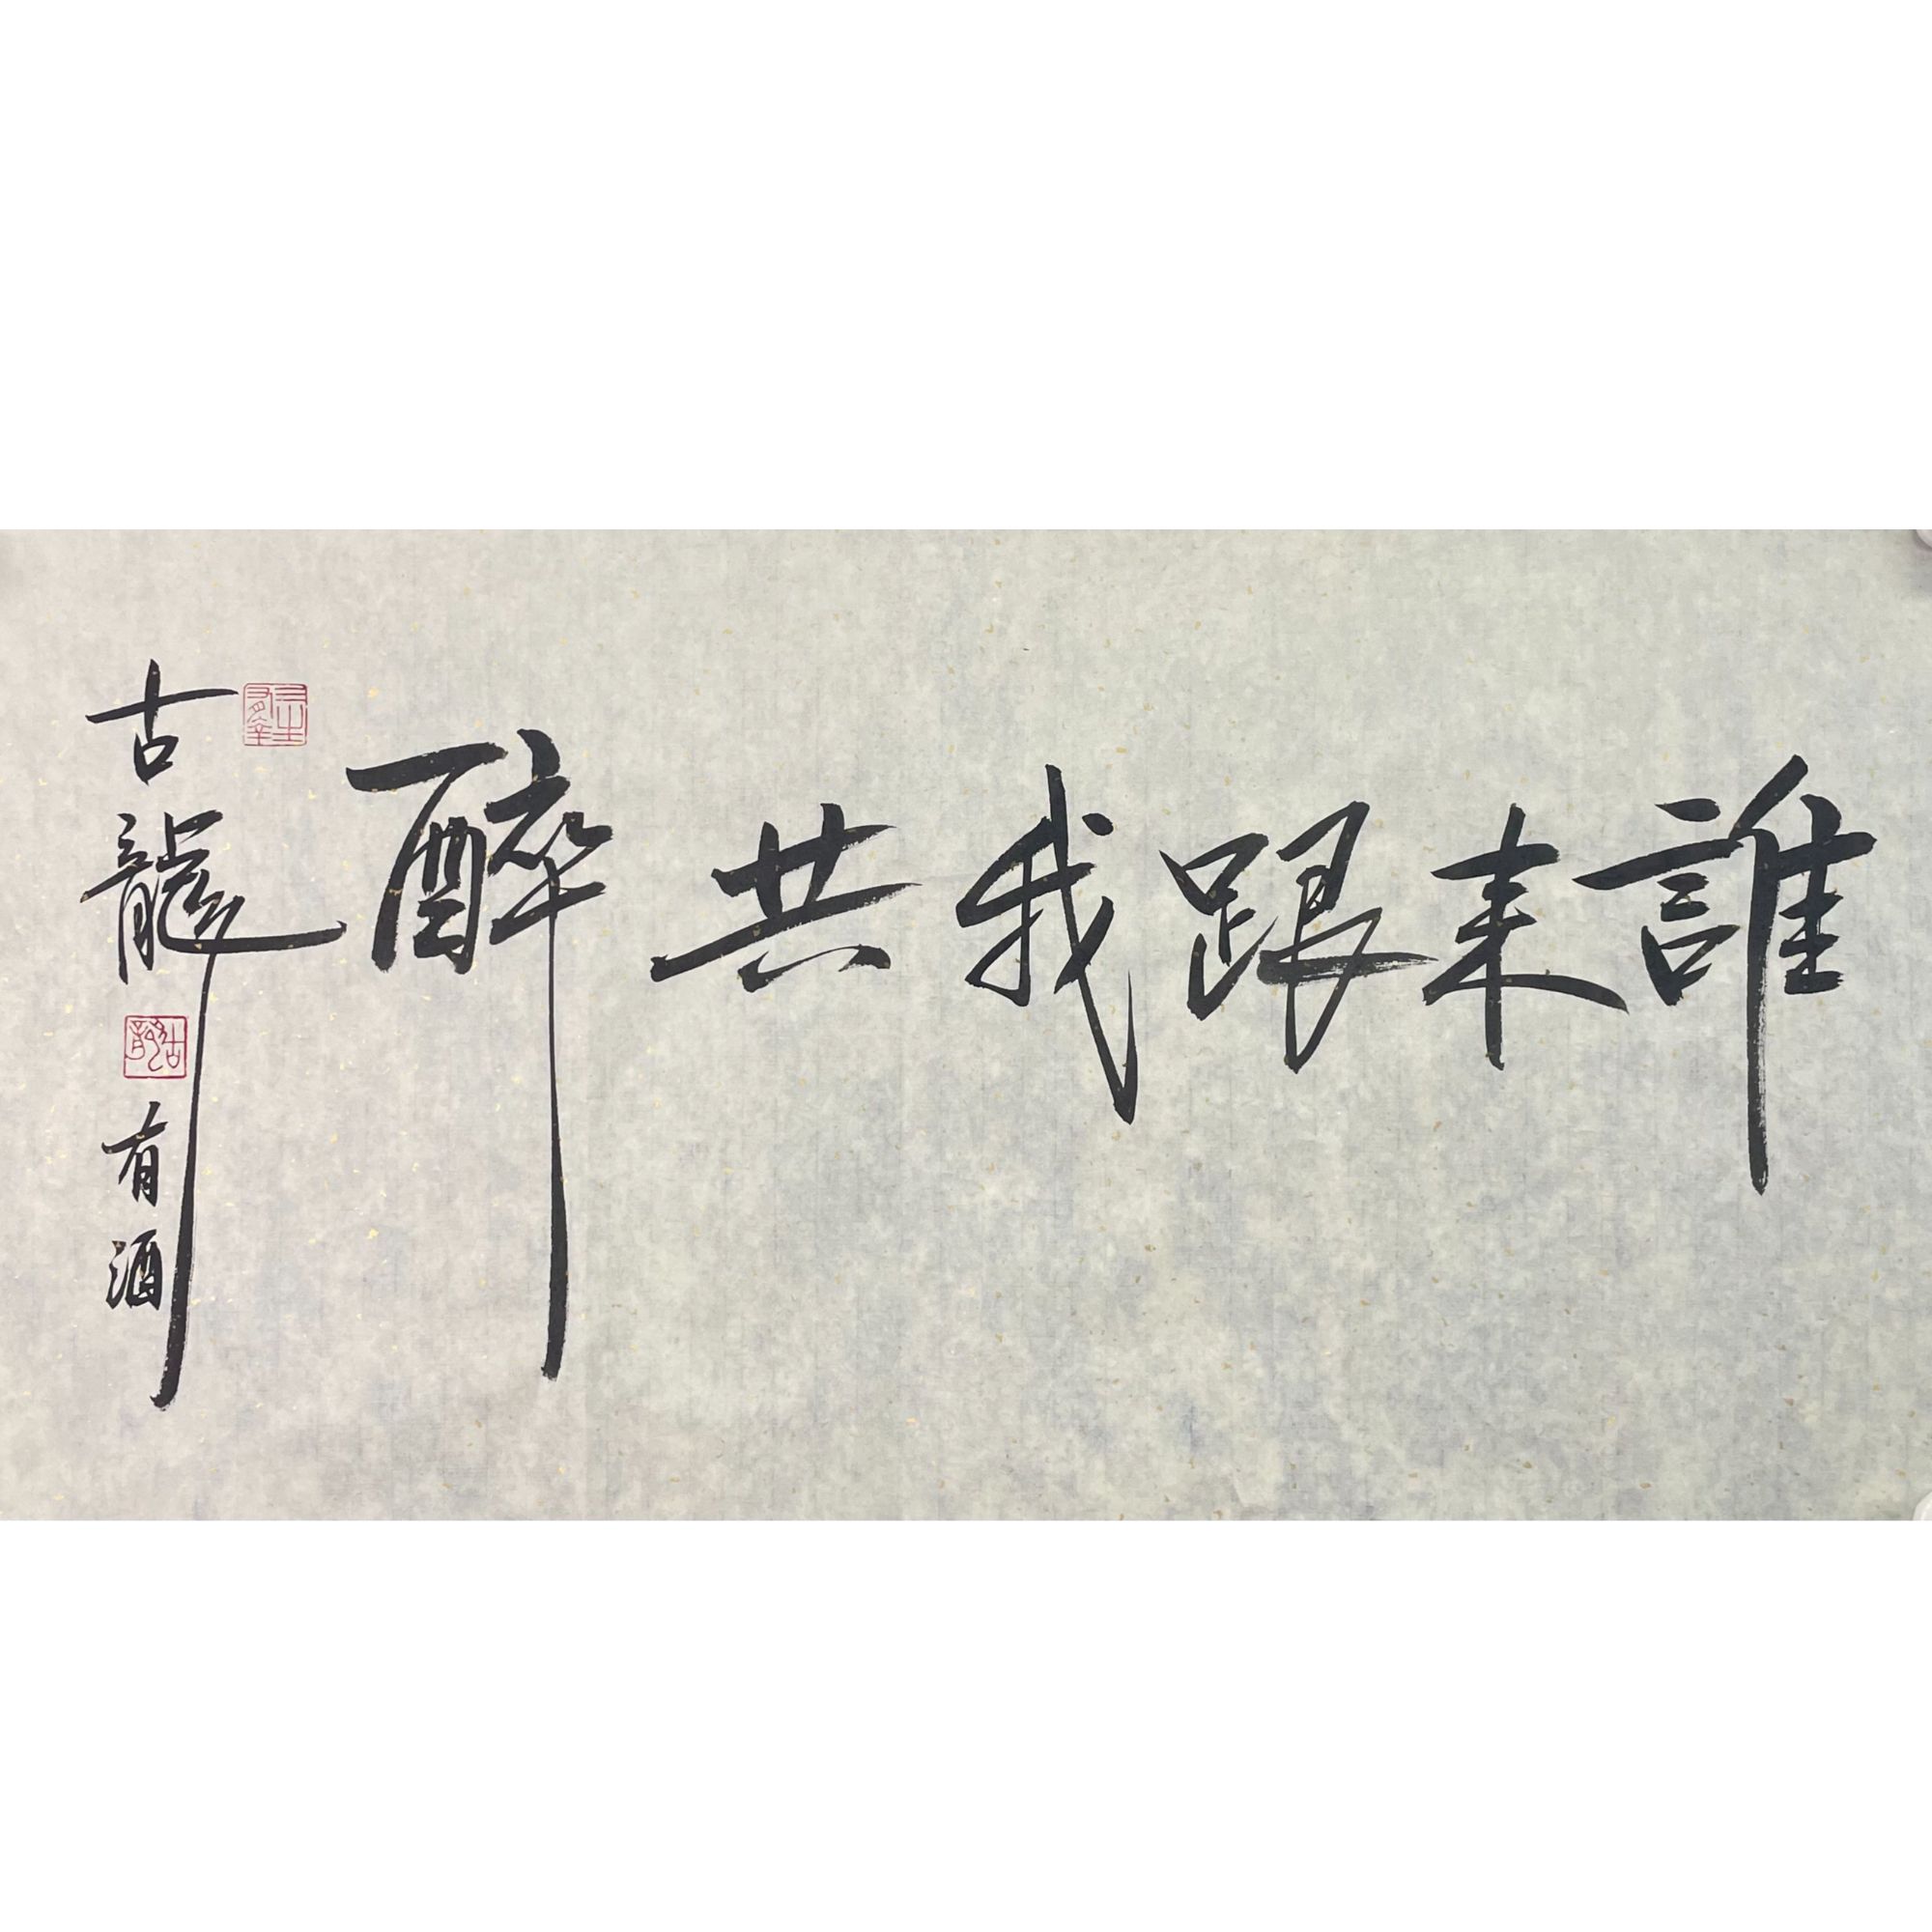 誰来跟我共醉
古龍
有酒